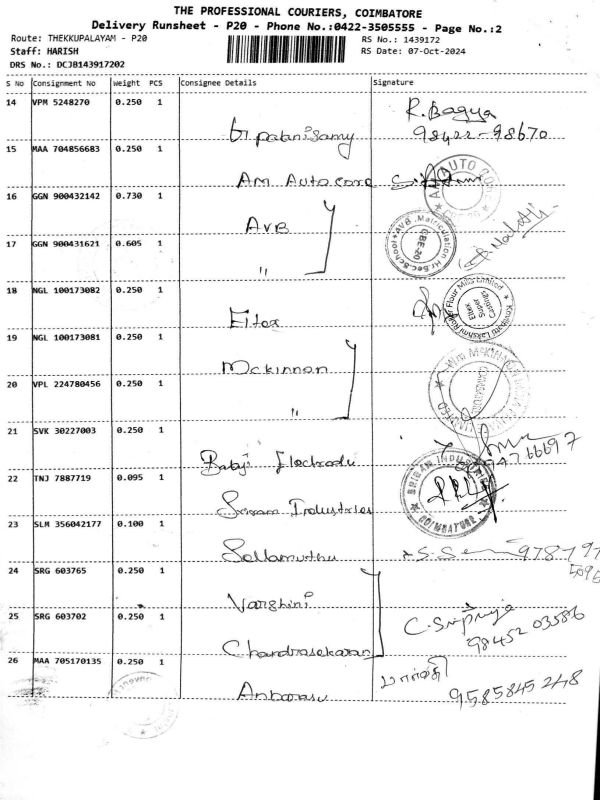 THE PROFESSIONAL COURIERS, COIMBATORE
Delivery Runsheet - P20 - Phone No.:0422-3505555 - Page No.:2
Route: THEKKUPALAYAM - P20
RS No.: 1439172
Staff: HARISH
RS Date: 07-Oct-2024
DRS No.: DCJB143917202
S No Consignment No Weight PCS Consignee Details Signature
14 VPM 5248270 0.250 1
R. Bagya
98422-98670
15 MAA 704856683 0.250 1
AM Auto Core
16 GGN 900432142 0.730 1
AVB
AVB. Matriculation Hr.Sec.School CBE-20
17 GGN 900431621 0.605 1
"
18 NGL 100173082 0.250 1
Eltex
Eltex Super Castings
19 NGL 100173081 0.250 1
Mckinnon
20 VPL 224780456 0.250 1
"
21 SVK 30227003 0.250 1
Babji Electrodu
22 TNJ 7887719 0.095 1
Sriram Industries
SRIRAM INDUSTRIES COIMBATORE
23 SLM 356042177 0.100 1
Sellamuthu
24 SRG 603765 0.250 1
Varshini
25 SRG 603702 0.250 1
C. Sripriya
98452 03586
Chandrasekaran
26 MAA 705170135 0.250 1
Anbarasu
9585845248